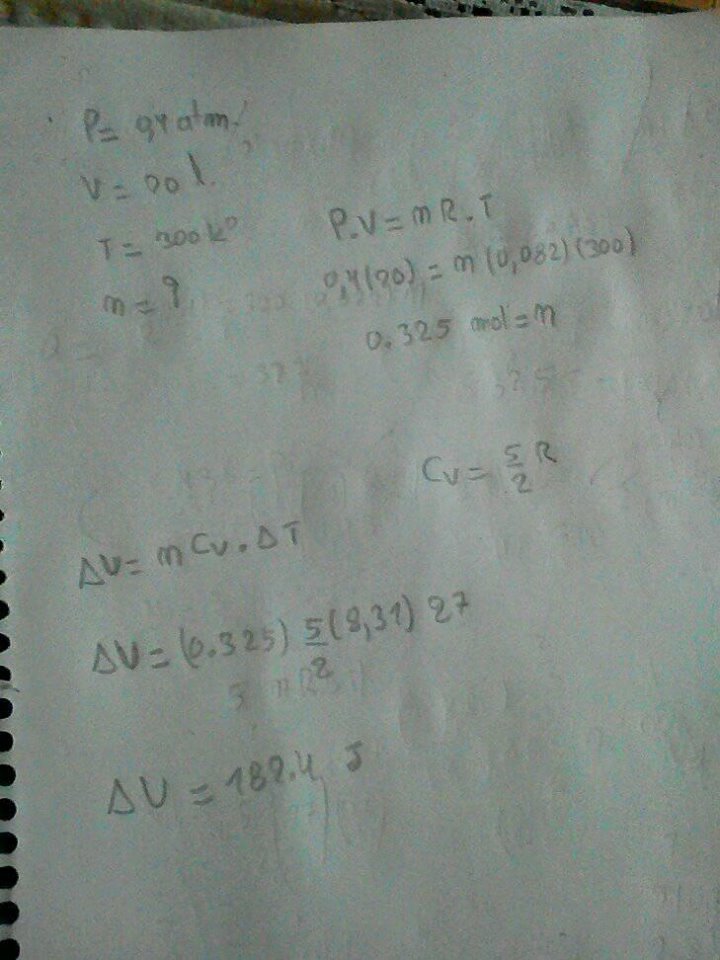 P= 0,4 atm.
V= 20 l.
T= 300 k°
n= ?
P.V= n R.T
0,4(20) = n (0,082)(300)
0.325 mol = n
Cv= 5/2 R
ΔU= n Cv. ΔT
ΔU= (0.325) 5/2 (8,31) 27
ΔU = 182.4 J